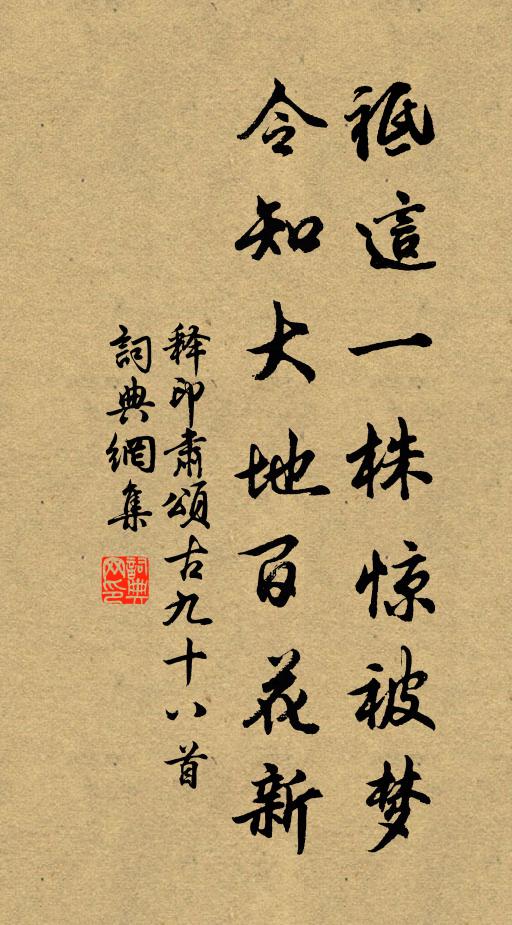 祗這一株惊被梦
令知大地百花新
释印肅頌古九十八首
詞典網集
詞典
网印